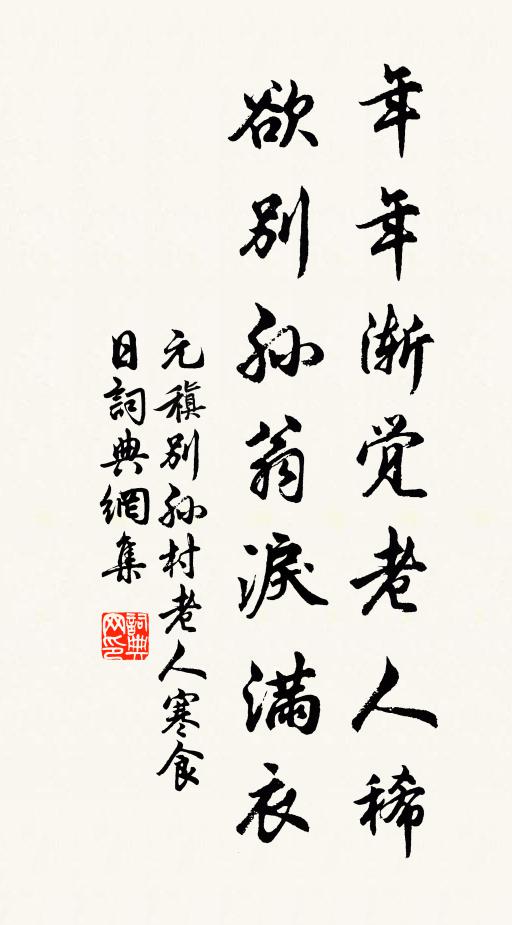 年年渐觉老人稀
欲别孙翁淚滿衣
元稹别孙村老人寒食
日詞典網集
詞典网印